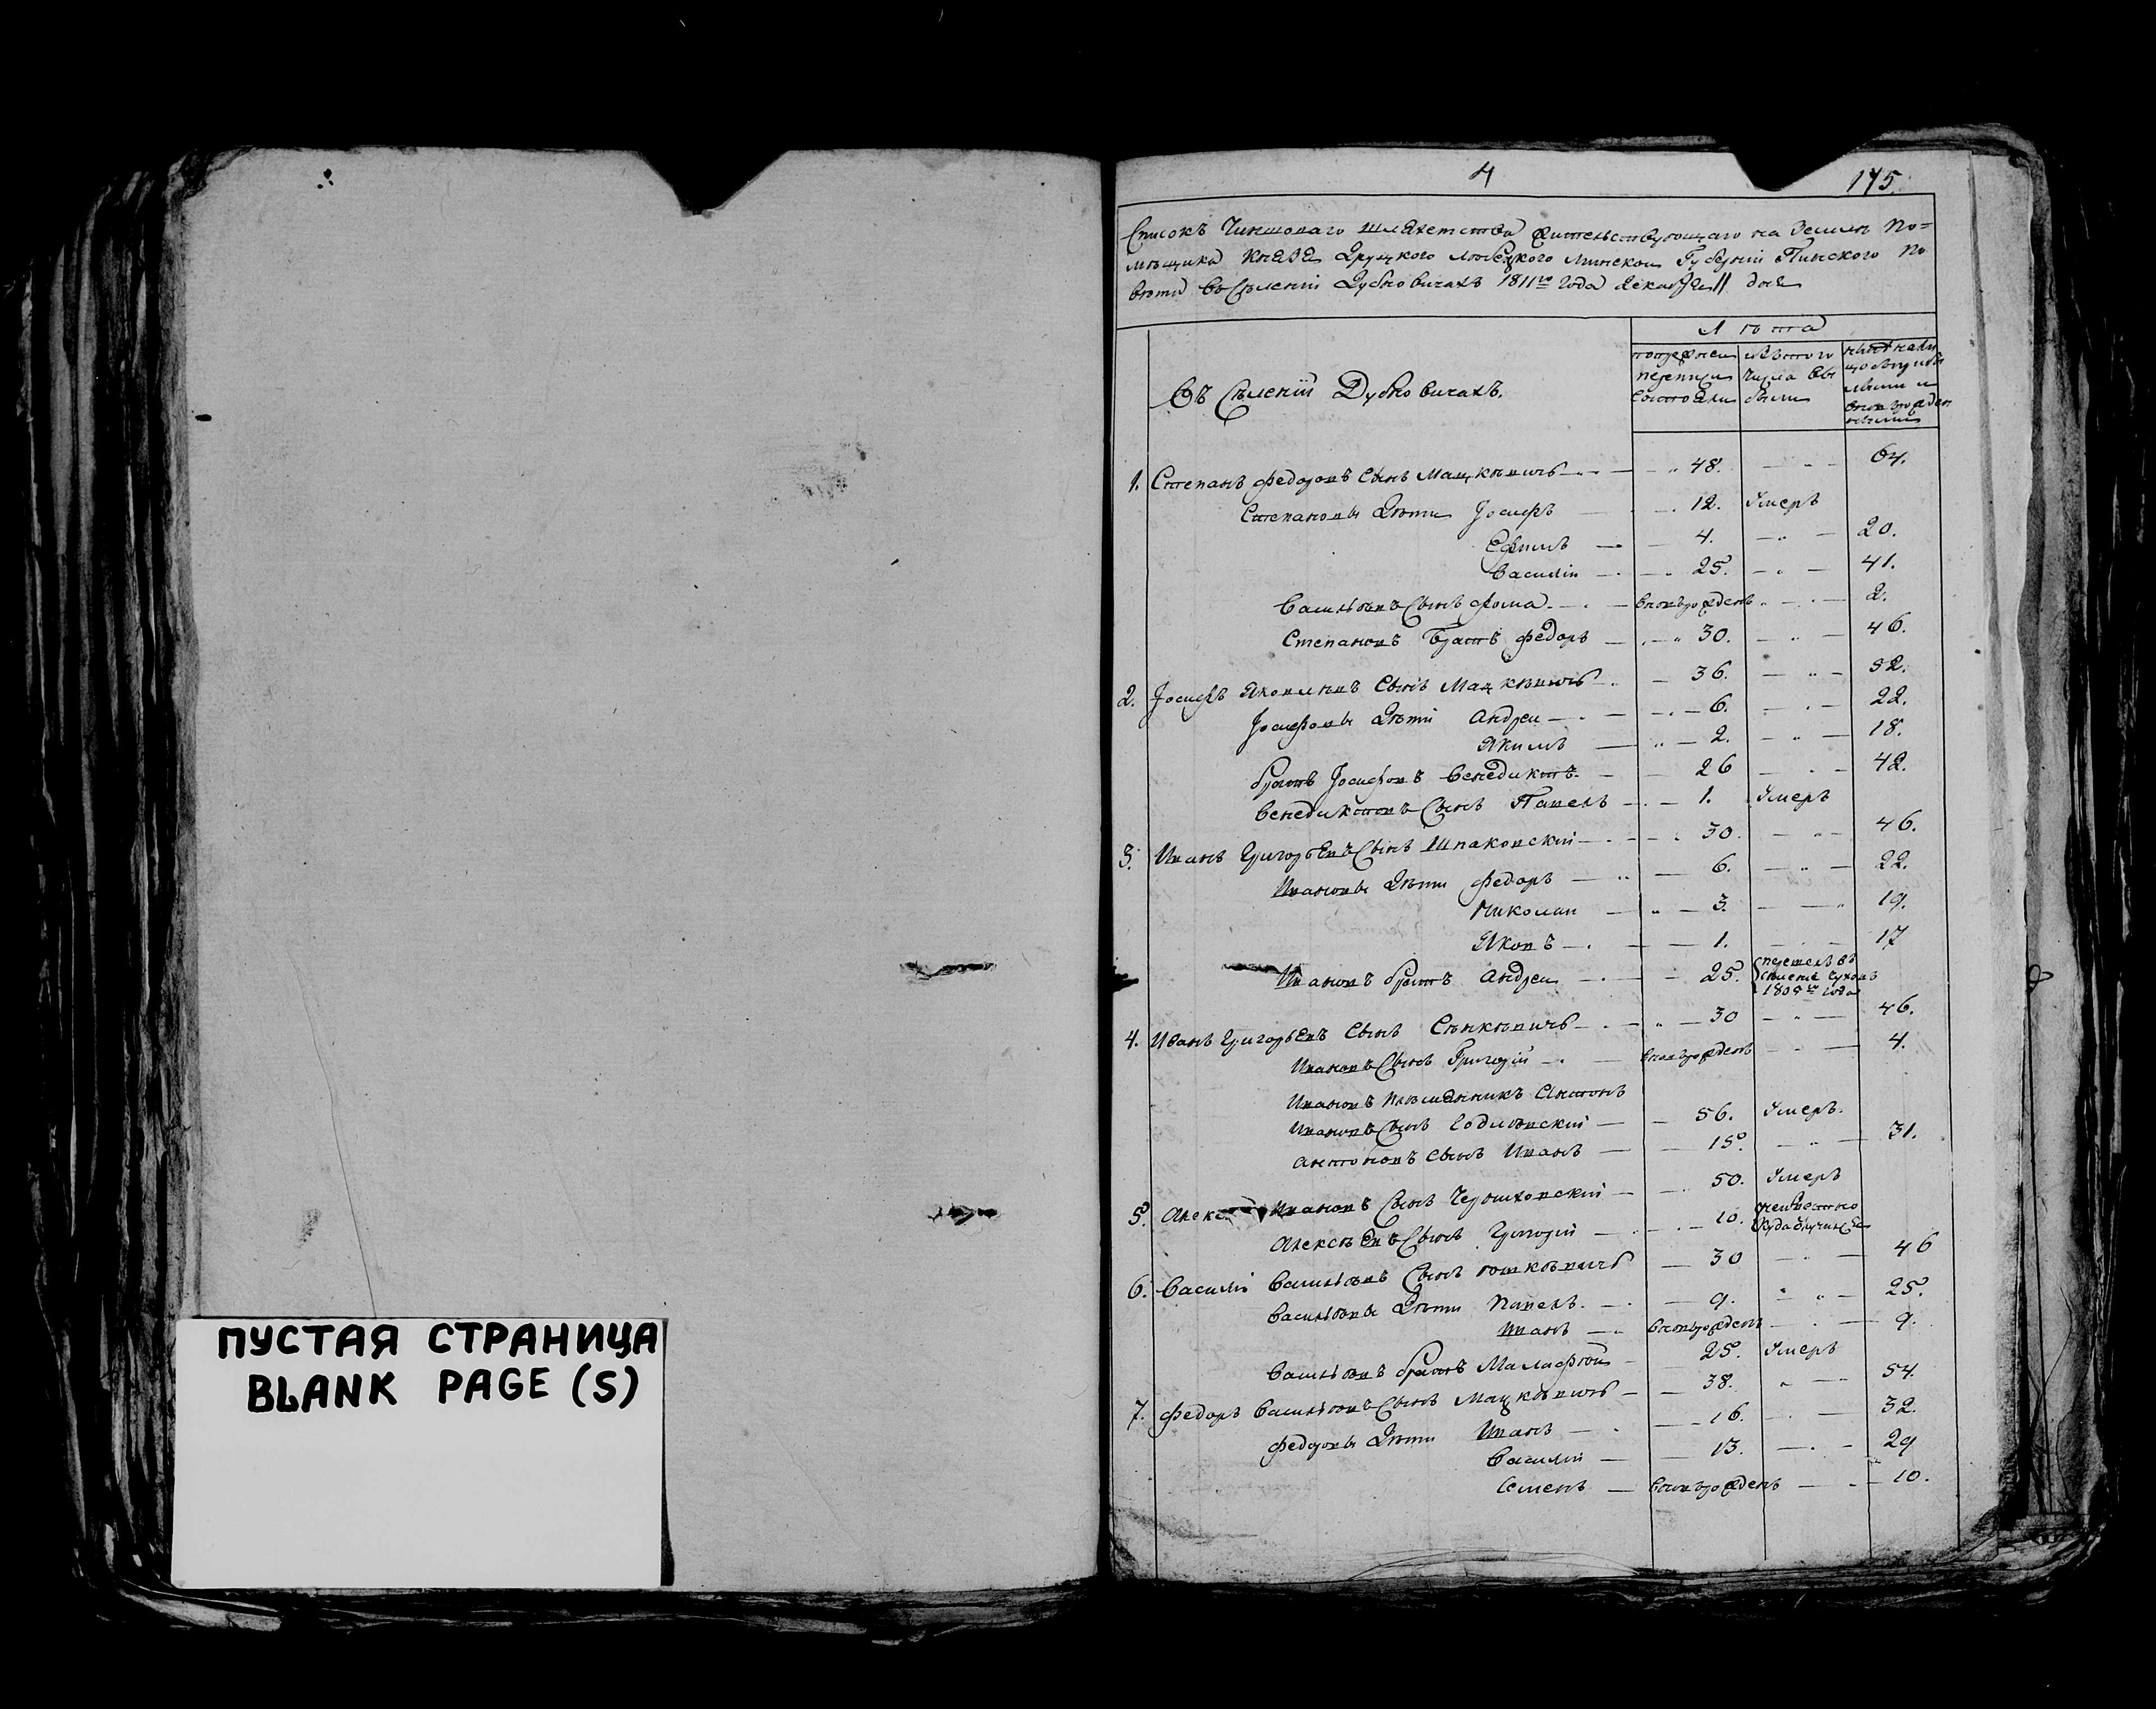 ПУСТАЯ СТРАНИЦА
BLANK PAGE (S)
4
175.
Списокъ Чиншоваго шляхетства жительствующаго на Земли По=
мѣщика Князя Друцкого Любецкого Минской Губерніи Пинского По
вѣта Въ Сѣленіи Дубновичахъ 1811го года Декабря 11 дня
Лѣта
по прежней переписи состояли
изъ того числа выбыли
нынѣ на лицо
Въ Сѣленіи Дубновичахъ.
1. Степанъ Федоровъ Сынъ Мацкѣвичъ 48. 64.
Степановы Дѣти Іосифъ 12. Умеръ
Ефимъ 4. 20.
Василій 25. 41.
Васильевъ Сынъ Фома вновьрожденъ 2.
Степановъ Братъ Федоръ 30. 46.
2. Іосифъ Яковлевъ Сынъ Мацкѣвичъ 36. 52.
Іосифовы Дѣти Андрей 6. 22.
Якимъ 2. 18.
братъ Іосифовъ Венедиктъ 26 42.
Венедиктовъ Сынъ Павелъ 1. Умеръ
3. Иванъ Григорьевъ Сынъ Шпаковскій 30. 46.
Ивановы Дѣти Федоръ 6. 22.
Николай 3. 19.
Яковъ 1. 17
Ивановъ братъ Андрей 25. 1805го года
4. Иванъ Григорьевъ Сынъ Сѣнкѣвичъ 30 46.
Ивановъ Сынъ Григорій вновьрожденъ 4.
Ивановъ племянникъ Антонъ
Ивановъ Сынъ 56. Умеръ.
Антоновъ Сынъ Иванъ 15. 31.
5. Ивановъ Сынъ 50. Умеръ
Алексѣевъ Сынъ Григорій 10. неизвестно куда
6. Василій Васильевъ Сынъ 30 46
Васильевы Дѣти Павелъ 9. 25.
Иванъ вновьрожденъ 9.
Васильевъ братъ Малафей 25. Умеръ
7. Федоръ Васильевъ Сынъ Мацкѣвичъ 38. 54.
Федоровы Дѣти Иванъ 16. 32.
Василій 13. 29
Семенъ вновьрожденъ 10.